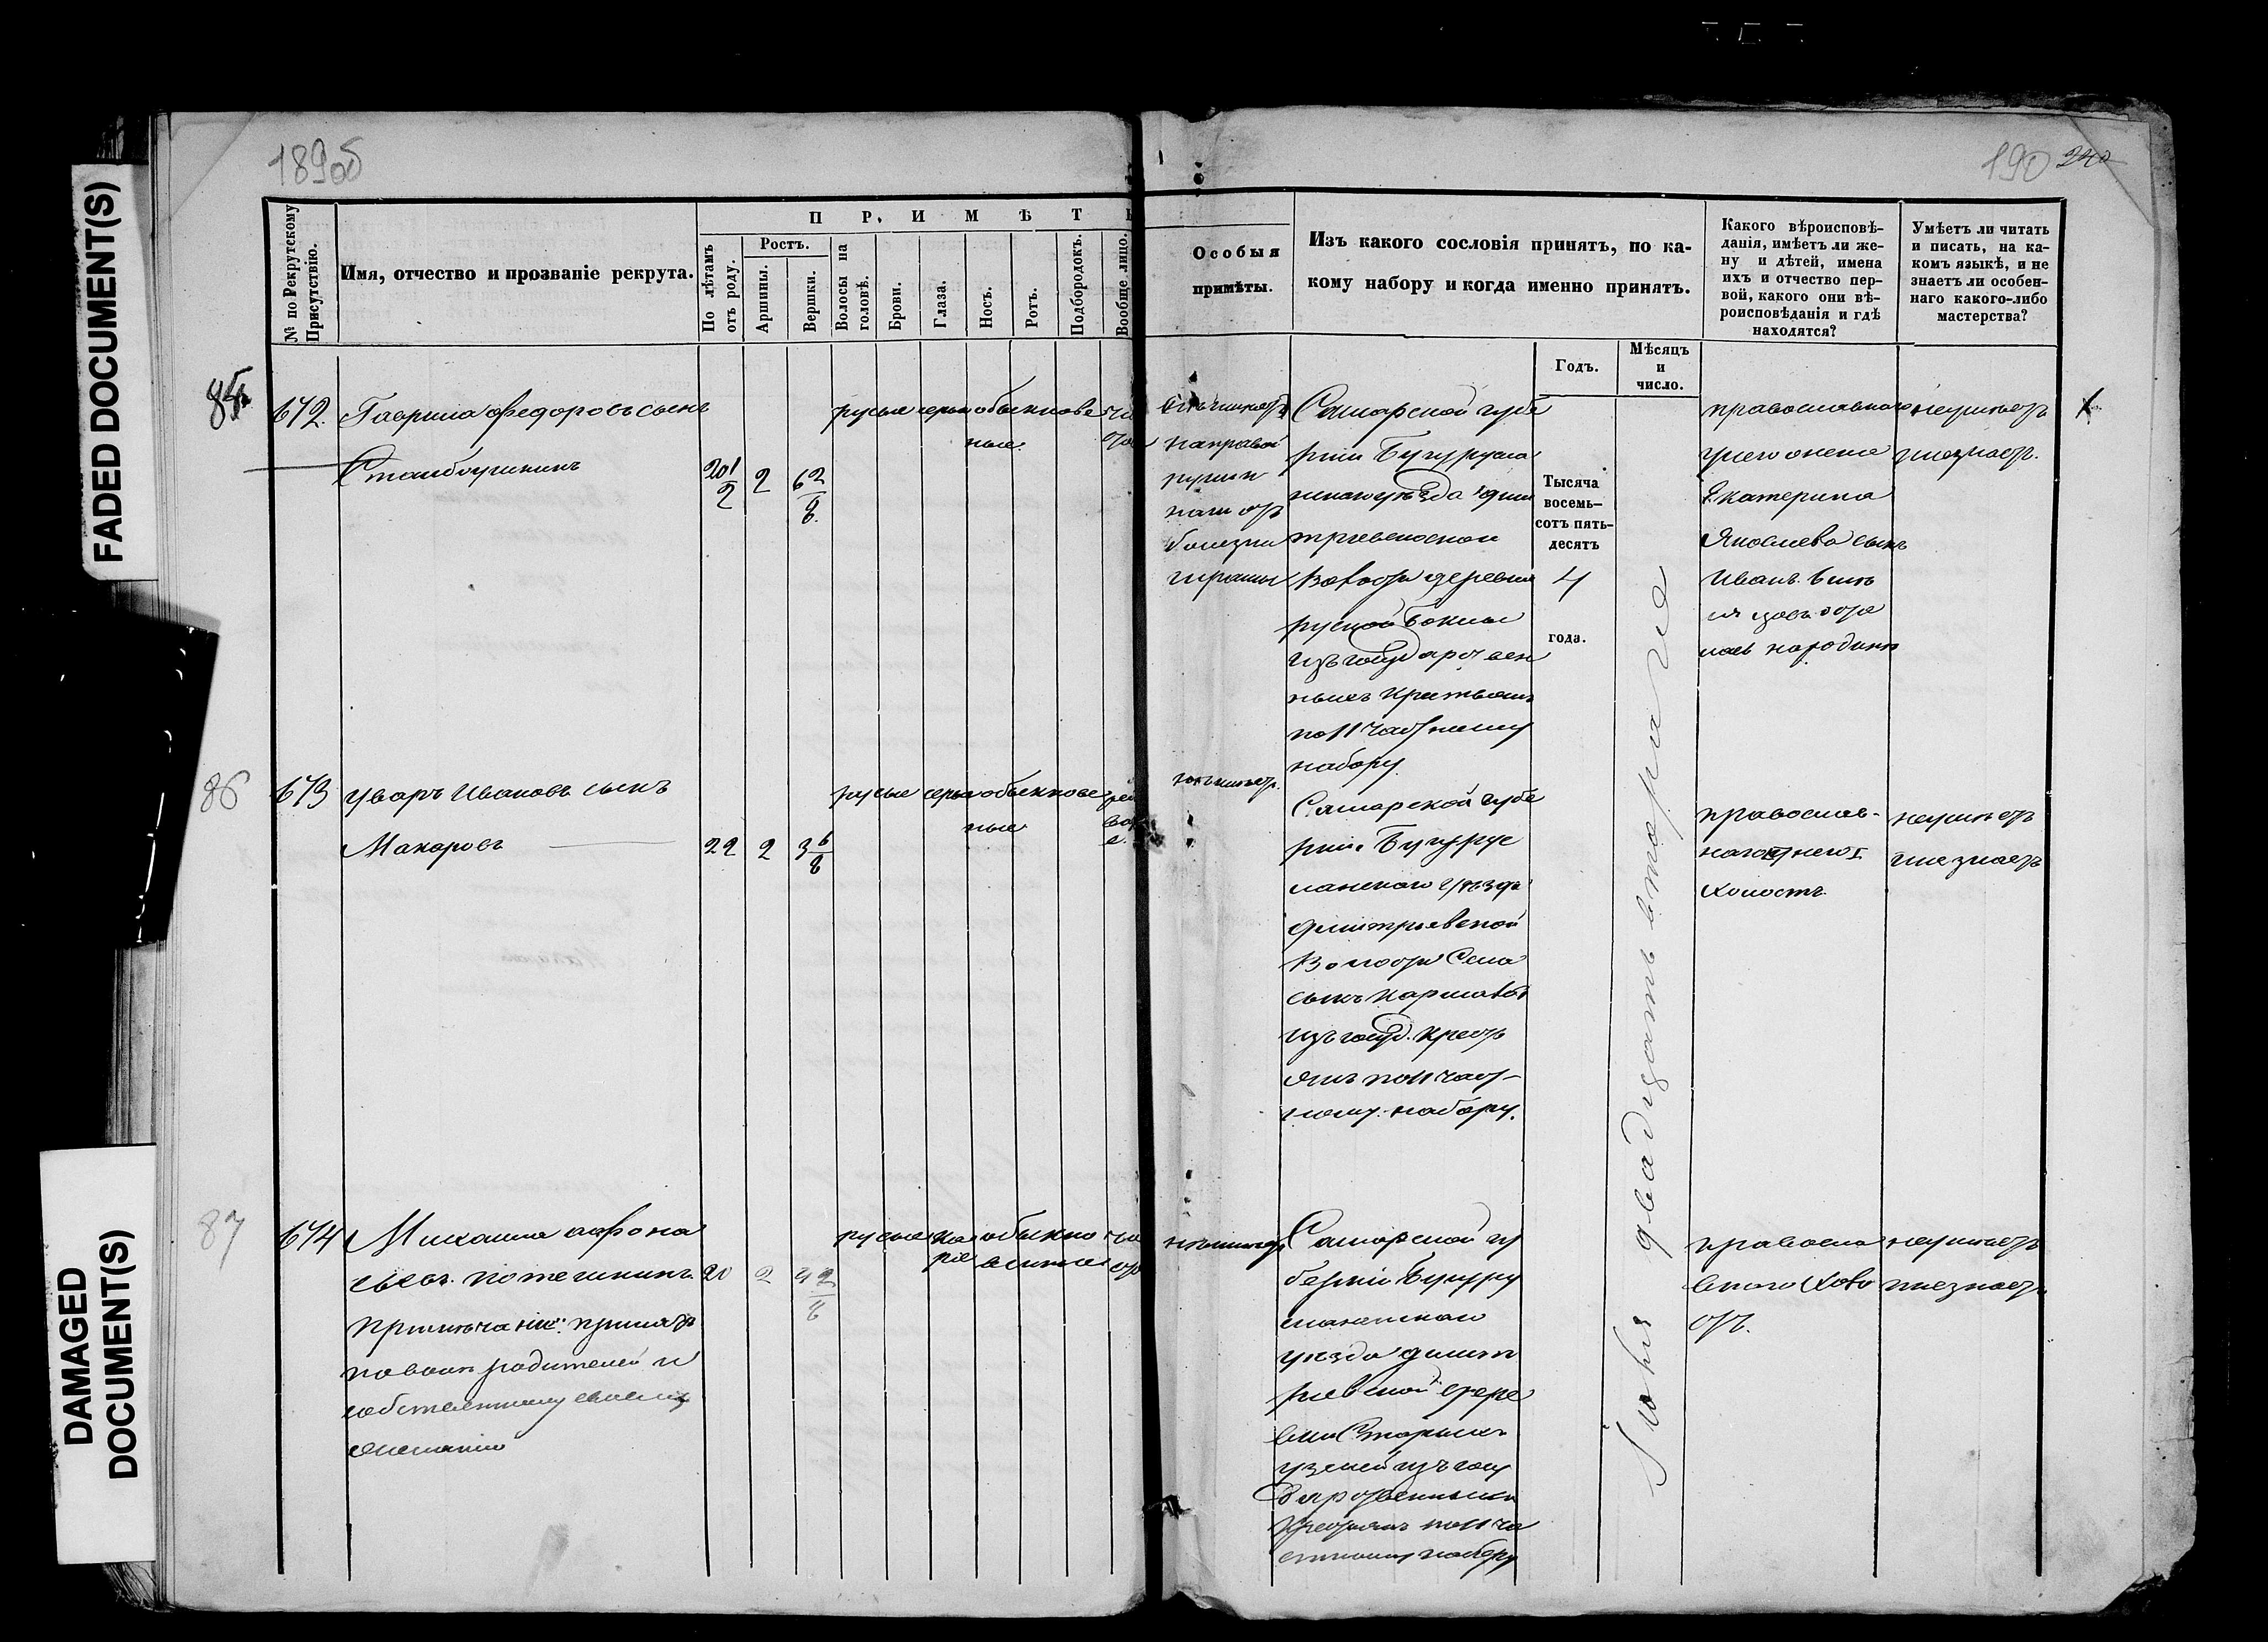 FADED DOCUMENT(S)
DAMAGED
DOCUMENT(S)
189об
190 240
№ по Рекрутскому
Присутствію.
Имя, отчество и прозваніе рекрута.
ПРИМѢТ
По лѣтамъ
отъ роду.
Ростъ.
Аршины.
Вершки.
Волосы на
головѣ.
Брови.
Глаза.
Носъ.
Ротъ.
Подбородокъ.
Вообще лицо.
Особыя
примѣты.
Изъ какого сословія принятъ, по ка-
кому набору и когда именно принятъ.
Годъ.
Мѣсяцъ
и
число.
Какого вѣроисповѣ-
данія, имѣетъ ли же-
ну и дѣтей, имена
ихъ и отчество пер-
вой, какого они вѣ-
роисповѣданія и гдѣ
находятся?
Умѣетъ ли читать
и писать, на ка-
комъ языкѣ, и не
знаетъ ли особен-
наго какого-либо
мастерства?
85
672. Гаврила Федоровъ сынъ
Стамбулкинъ
20 1/2 2 6 2/8
русые серые обыкнове
ные
чис
тое
на правой
руки
болезни
Самарской губе
рніи Бугурусла
нскаго уѣзда Дми
тріевской
Волости деревни
Руской Боклы
изъ государствен
ныхъ крестьянъ
по 11 частному
набору
Тысяча
восемь-
сотъ пять-
десятъ
4
года.
Іюня двадцать втораго
православнаго
у него жена
Екатерина
Яковлева сынъ
Иванъ 6 лѣт
остал
ись на родинѣ
неумѣетъ
и незнаетъ
86
673 Уваръ Ивановъ сынъ
Макаровъ
22 2 3 6/8
русые серые обыкнове
ные
неимѣетъ.
Самарской губе
рніи Бугурус
ланскаго уѣзда
Дмитріевской
Волости Села
изъ госуд. крест
янъ по 11 част-
ному набору.
православ-
наго
холостъ.
неумѣетъ
и незнаетъ
87
674 Михаила Афона
сьевъ Потешкинъ
Примѣчаніе: принятъ
по воли родителей и
собственному своему
желанію
20 2 4 2/8
русые ка
ріе
обыкно
венные
чис
тое
неимѣетъ
Самарской гу
берніи Бугуру
сланскаго
уѣзда Дмит
ріевской дере
вни Старыхъ
Узелей изъ госу
дарственныхъ
Крестьянъ по 11 ча
стному набору
правосла
внаго холо
стъ.
неумѣетъ
и незнаетъ